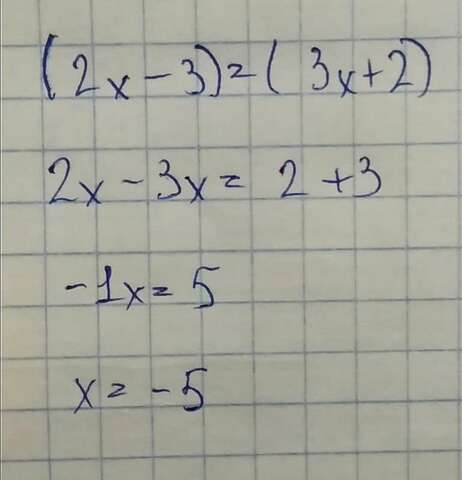 (2x-3)=(3x+2)
2x-3x= 2+3
-1x=5
x=-5